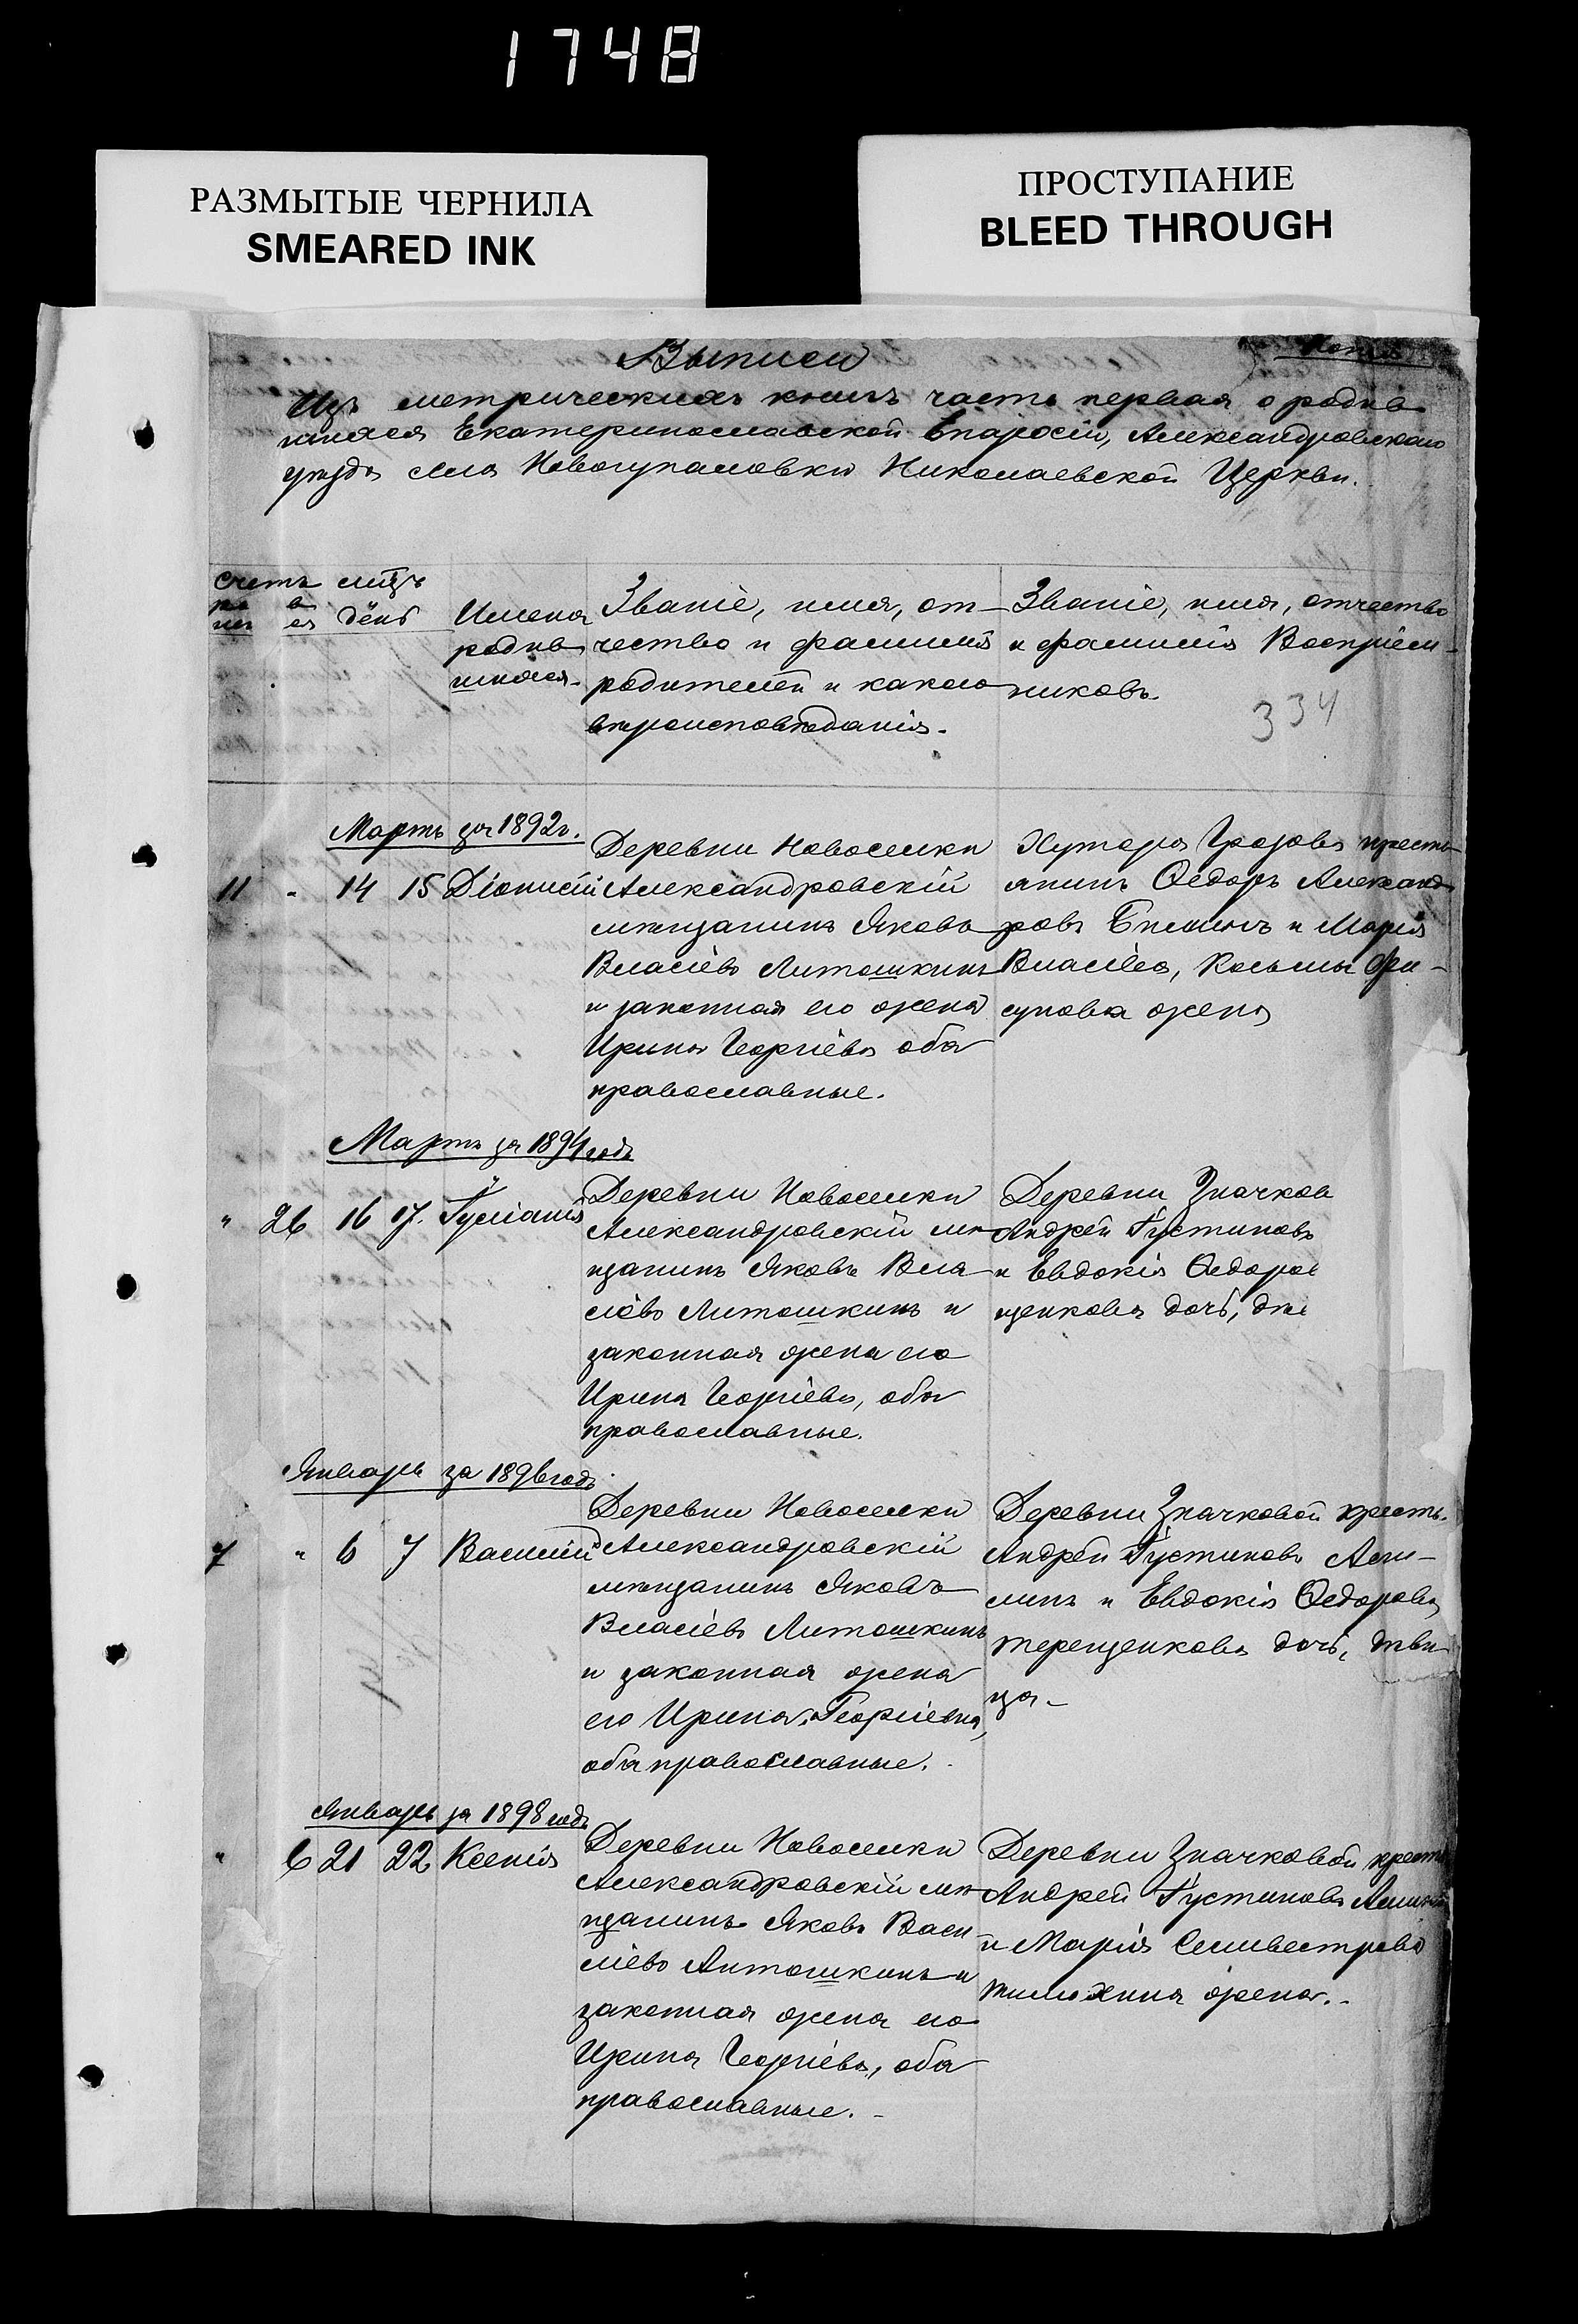 1748
РАЗМЫТЫЕ ЧЕРНИЛА
SMEARED INK
ПРОСТУПАНИЕ
BLEED THROUGH
Копия
Выписи
Изъ метрическихъ книгъ часть первая о родив
шихся Екатеринославской Епархіи, Александровскаго
уѣзда села Новогупаловки Николаевской Церкви.
Счетъ
мѣсяцъ
день
Имена
родив
шихся.
Званіе, имя, от-
чество и фамилія
родителей и какого
вѣроисповѣданія.
Званіе, имя, отчество
и фамилія Воспріем-
никовъ.
334
Мартъ за 1892 г.
11 " 14 15 Діонисій
Деревни Новоселки
Александровскій
мѣщанинъ Яковъ
Власіевъ Литошкинъ
и законная его жена
Ирина Георгіева оба
православные.
Хутора Грозова кресть
янинъ Ѳедоръ Александ
ровъ и Марія
Власіева, Косьмы
жена
Мартъ за 1894 годъ
" 26 16 17. Іуліанія
Деревни Новоселки
Александровскій мѣ
щанинъ Яковъ Вла
сіевъ Литошкинъ и
законная жена его
Ирина Георгіева, оба
православные.
Деревни Значков
Андрей Іустиновъ
и Евдокія Ѳедоров
щенкова дочь, дѣ
Январь за 1896 годъ
7 " 6 7 Василій
Деревни Новоселки
Александровскій
мѣщанинъ Яковъ
Власіевъ Литошкинъ
и законная жена
его Ирина Георгіевна,
оба православные.
Деревни Значковой кресть.
Андрей Іустиновъ
и Евдокія Ѳедорова
Терещенкова дочь, дѣви
ца-
Январь за 1898 годъ
" 6 21 22 Ксенія
Деревни Новоселки
Александровскій мѣ
щанинъ Яковъ Васи
ліевъ Антошкинъ и
законная жена его
Ирина Георгіева, оба
православные.-
Деревни Значковой кресть
Андрей Іустиновъ
и Марія Селивестрова
Тимохина жена.-